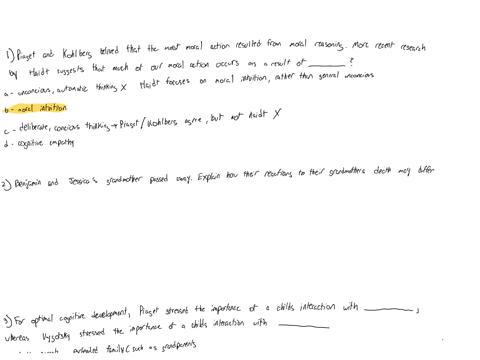 1) Piaget and Kohlberg belived that the most moral action resulted from moral reasoning. More recent research
by Haidt suggests that much of our moral action occurs as a result of ________ ?
a - unconcious, automatic thinking X Haidt focuses on moral intuition, rather than general unconcious
b - moral intuition
c - deliberate, concious thinking → Piaget / Kohlbergs agree, but not Haidt X
d - cognitive empathy
2) Benjamin and Jessica's grandmother passed away. Explain how their reactions to their grandmothers death may differ
3) For optimal cognitive development, Piaget stressed the importance of a childs interaction with ________ ;
whereas Vygotsky stressed the importance of a childs interaction with ________
extended family (such as grandparents